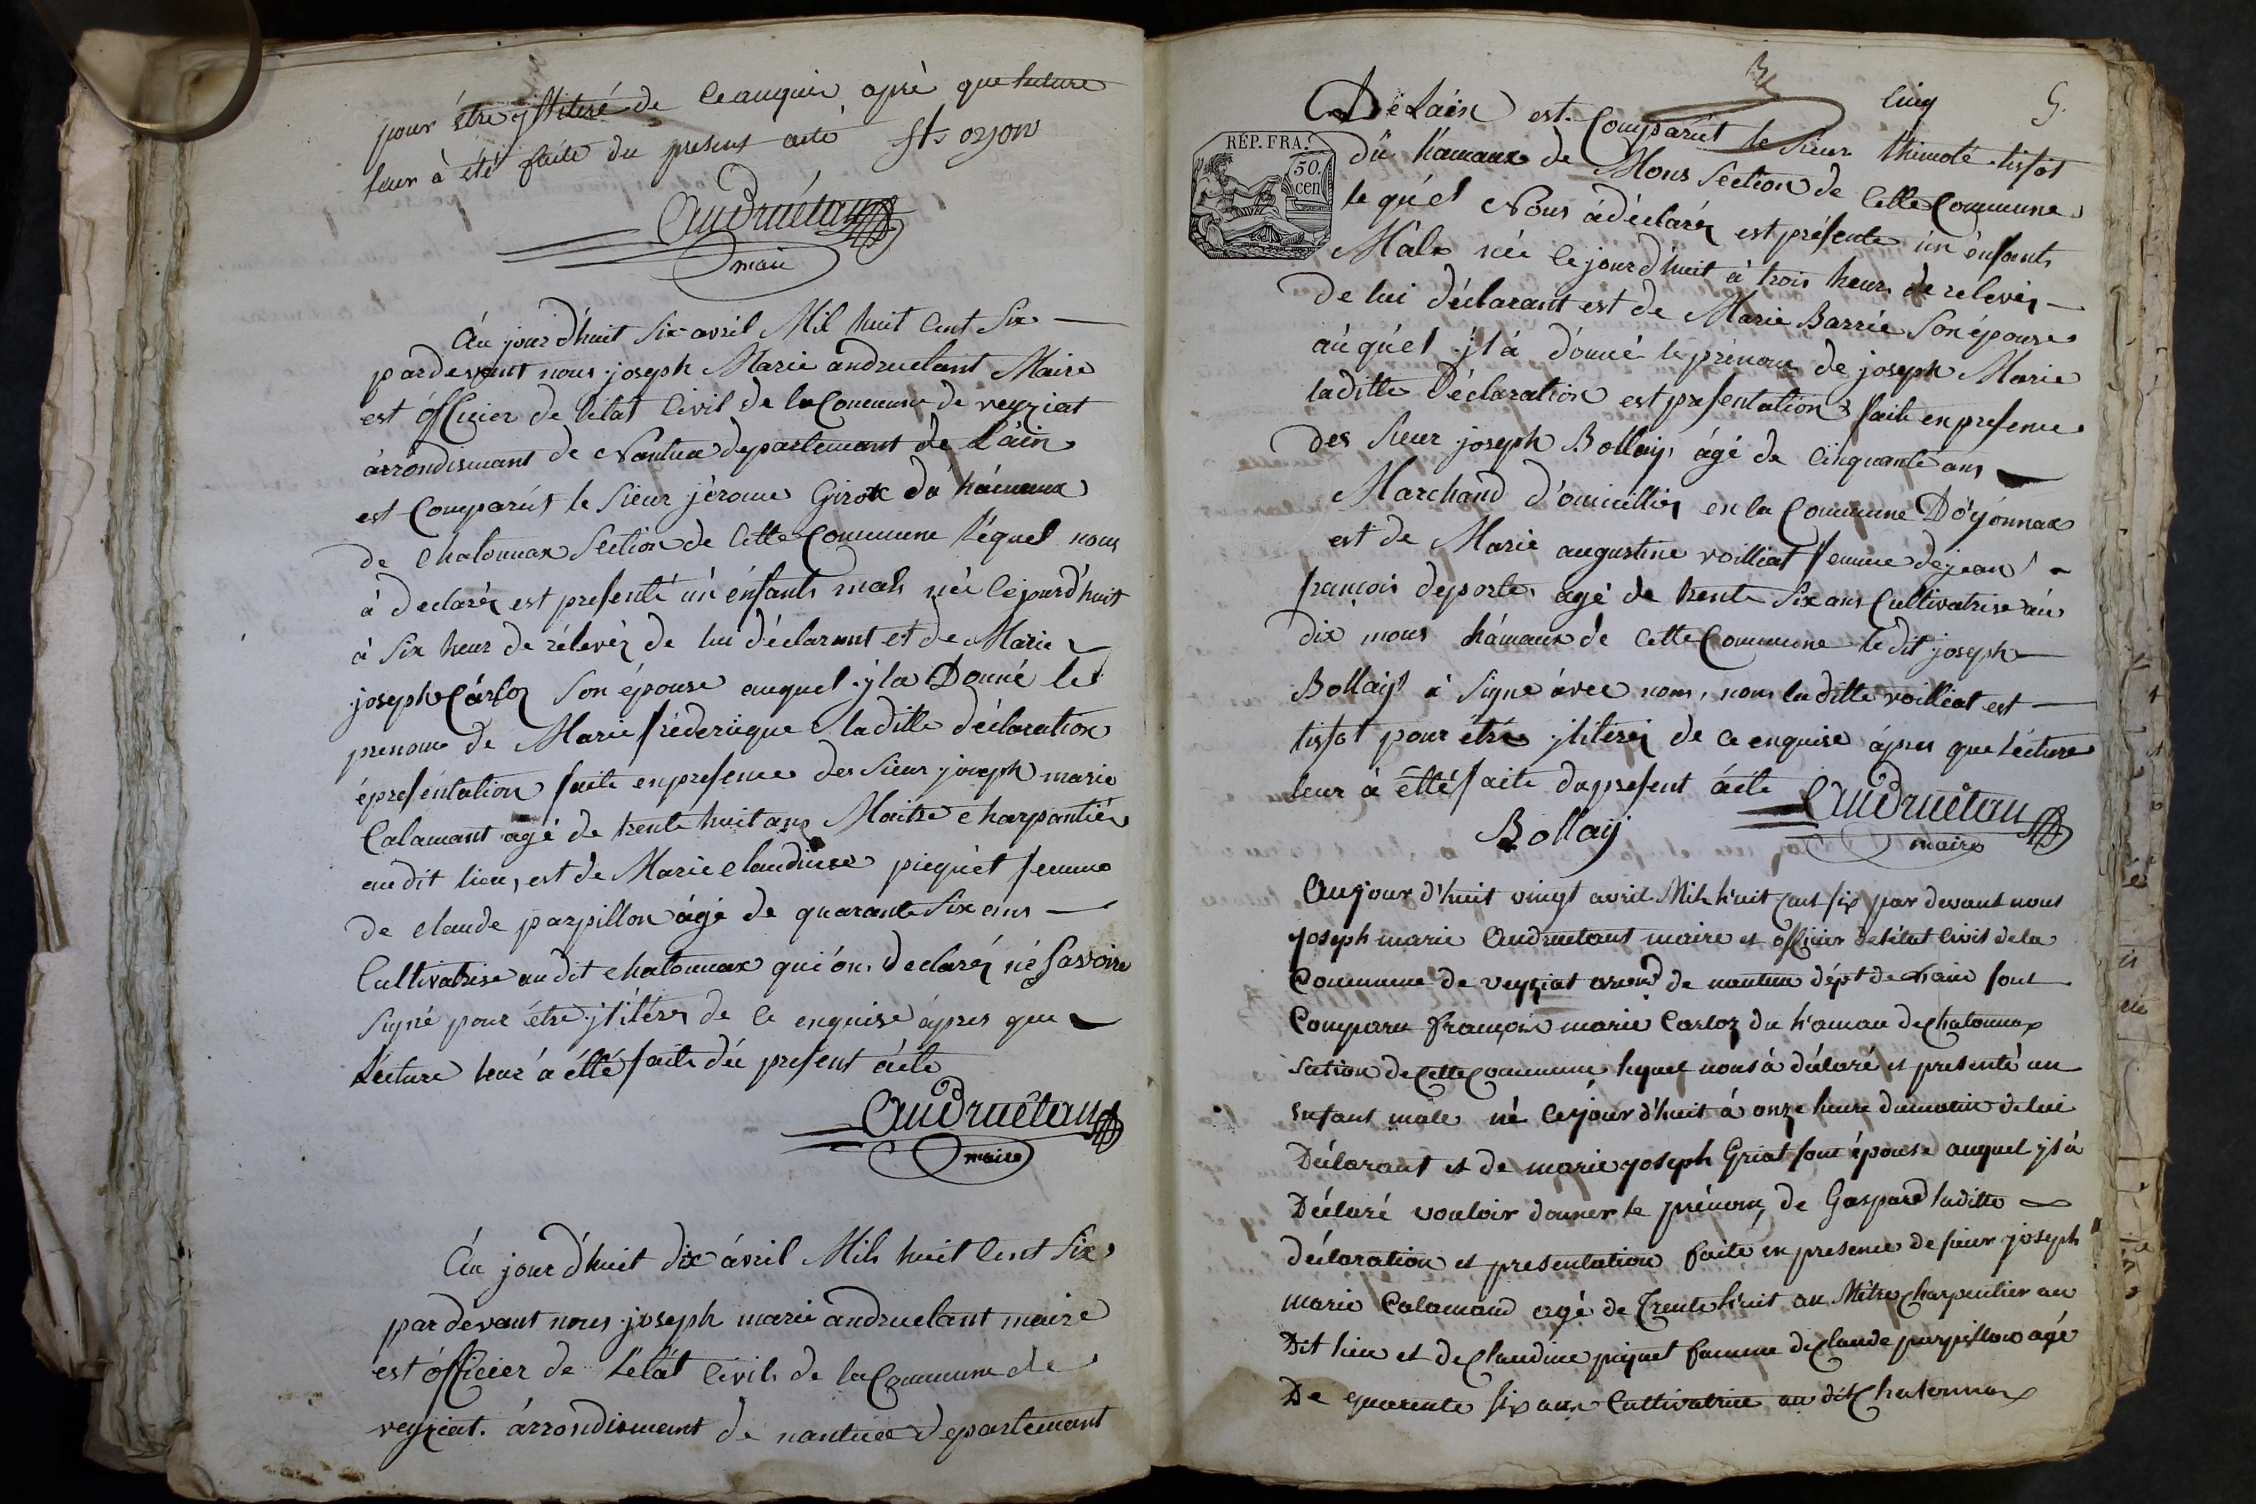 pour être jlliteré de ceanquis aprè que lecture
leur à été faite du presens acte fts oyon
andruétan
maire
Au jourd'huit Six avril Mil huit Cent Six
pardevant nous joseph Marie andruetant Maire
est officier de l'état Civil de la Commune de veyziat
arrondismant de Nantua departement de L'ain
est Comparut le Sieur jérome Girot du hámaux
de Chatonnax Section de Cette Commune léquel nous
à declaréz est presenté un énfants mals née lejourd'huit
à Six heur de rélévez de lui déclarant et de Marie
joseph Cárloz Son épouse auquel jl a Donné le
prenom de Marie fréderique laditte déclaration
épreséntation faite enpresence des Sieur joseph marie
Calamant agé de trente huit ans Maitre charpantiér
audit lieu, est de Marie claudine piequet femme
de claude parpillon àgé de quarante Six ans
Cultivatrise audit chatonnax qui ón declaréz né Savoire
Signé pour étre jlitéréz de ce enquise ápres que
Lécture leur à étté faite du present ácte
Andruétan
maire
Au jourd'huit dix ávril Mils huit Cent Six
pardevant nous joseph marie andruetant maire
est officier de L'etát Civils de la Commune de
veyziat. arrondisment de nantua departement
Cinq 5.
De Láin est Comparút le Sieur thimoté tissot
du hámaux de Mons Section de Cette Commune
RÉP. FRA.
50.
cen
le quél Nous á déclaréz est présente ún énfants
Mâle née lejourd'huit à trois heur de relevéz
de lui déclarant est de Marie Barrie Son épouse
áuquél jl à donné le prénom de joseph Marie
laditte Déclaration est présentation faite enpresence
des Sieur joseph Bollay, ágé de Cinquante ans
Marchand d'omicilliéz en la Commune D'óyónnax
est de Marie augustine voilliat femme de jean
françois deporte, agé de trente Six ans Cultivatrise áu
dix mons hámaux de Cette Commune le dit joseph
Bollay à Signe ávec nous, nous laditte voilliat est
tissot pour étré jlitéréz de ce enquise ápres que Lécture
leur à étté faite du present ácte
Andruétan
Bollaij
maire
Aujourd'huit vingt avril Mils h'uit cent six par devant nous
joseph marie Andruetant maire et officier de l'état Civil de la
Commune de veyziat arrond de nantua dépt de l'ain sont
Comparu françois marie Carloz du h'amau de chatonnax
Section de Cette Commune lequel nous à déclaré et presenté un
Enfant male né Cejourd'huit à onze heure dumatin de lui
Déclarant et de marie joseph Griat son épouse auquel jl à
Déclaré vouloir donner le prénom, de Gaspard laditte
déclaration et presentation faite en presence de sieur joseph
marie Calamand agé de Trente h'uit an Mètre charpentier au
Dit lieu et de Claudine piquet famme de Claude parpillon agé
De quarente six ans Cultivatrice au dit Chatonnax